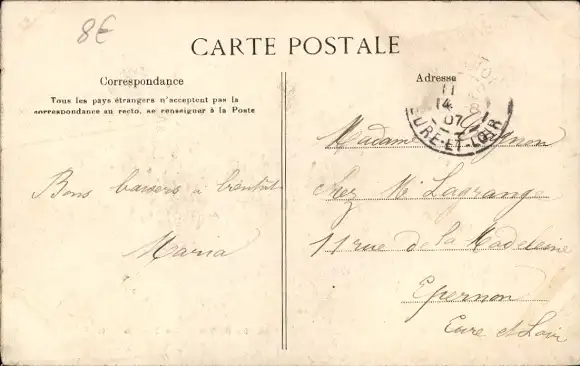 8€
CARTE POSTALE
Correspondance
Tous les pays étrangers n'acceptent pas la
correspondance au recto, se renseigner à la Poste
Bons baisers a bientôt
Maria
Adresse
11
4
07
EURE-ET-LOIR
Madame
chez Mr Lagrange
11 rue de la Madeleine
Epernon
Eure et Loir